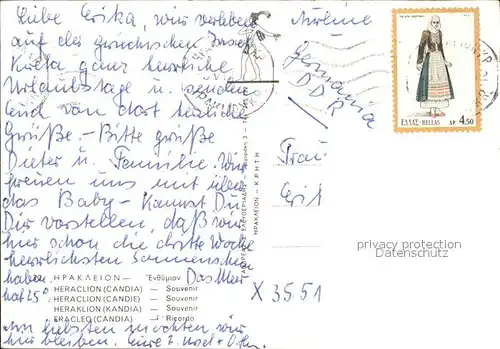 Liebe Erika, wir verleben
auf der griechischen Insel
Kreta ganz herrliche
Urlaubstage u. senden
Euch von dort herzliche
Grüße. – Bitte grüße
Dieter u. Familie. Wir
freuen uns mit über
das Baby – Kannst Du
Dir vorstellen, daß wir
hier schon die dritte Woche
herrlichsten Sonnenschein
haben. Das Meer
hat 25°
ΗΡΑΚΛΕΙΟΝ — Ἐνθύμιον
HERACLION (CANDIA) — Souvenir
HERACLION (CANDIE) — Souvenir
HERAKLION (KANDIA) — Souvenir
ERACLEO (CANDIA) — Ricordo
Am liebsten möchten wir
hier bleiben. Eure
ΗΡΑΚΛΕΙΟΝ - ΚΡΗΤΗ
Airline
Germania
DDR
ΕΛΛΑΣ-HELLAS ΔΡ. 4.50
Frau
Erik
privacy protection
privacy protection
X 3551